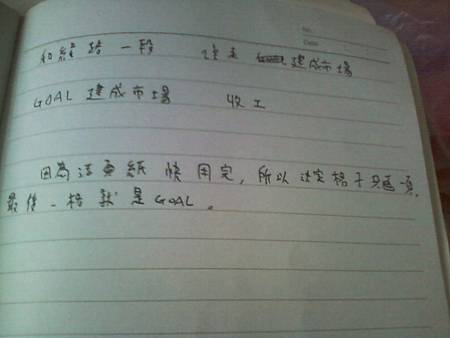 No.
Date
和經絡一段 誰走 建成市場
GOAL 建成市場 收工
因為這頁紙快用完，所以決定格子只這頁，
最後一格就是GOAL。